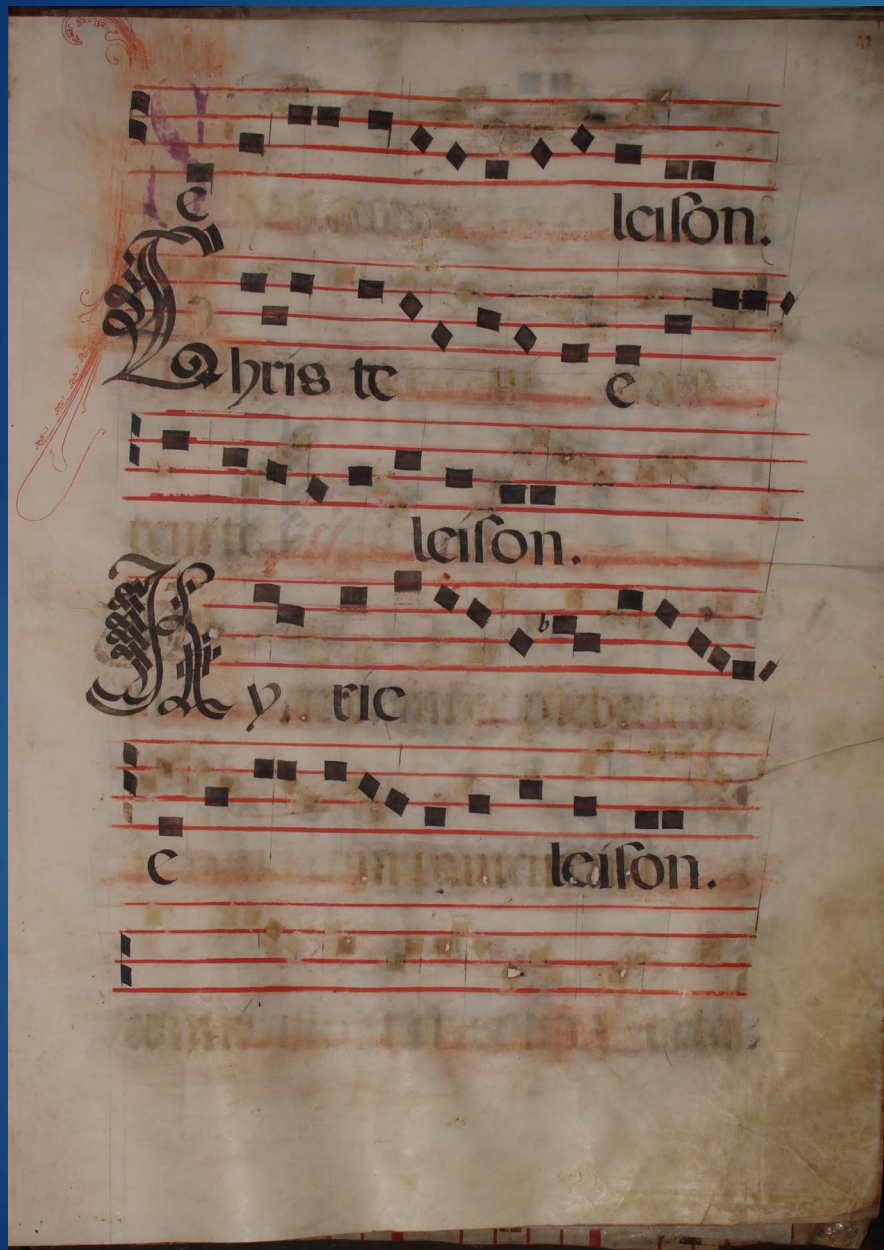 e leiſon.
Chris te e
leiſon.
Ky rie
e leiſon.